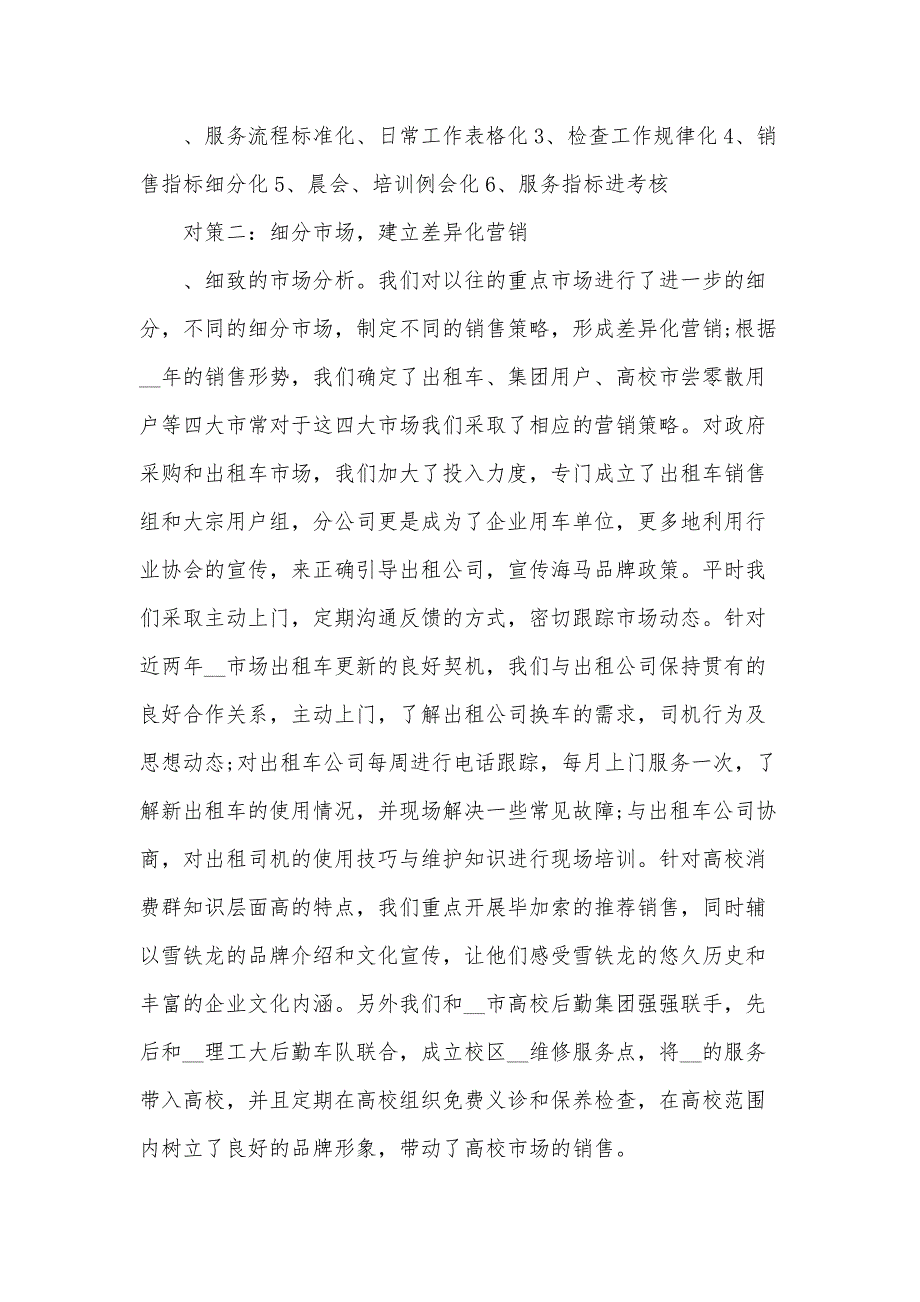 、服务流程标准化、日常工作表格化3、检查工作规律化4、销
售指标细分化5、晨会、培训例会化6、服务指标进考核
对策二：细分市场，建立差异化营销
、细致的市场分析。我们对以往的重点市场进行了进一步的细
分，不同的细分市场，制定不同的销售策略，形成差异化营销;根据
__年的销售形势，我们确定了出租车、集团用户、高校市尝零散用
户等四大市常对于这四大市场我们采取了相应的营销策略。对政府
采购和出租车市场，我们加大了投入力度，专门成立了出租车销售
组和大宗用户组，分公司更是成为了企业用车单位，更多地利用行
业协会的宣传，来正确引导出租公司，宣传海马品牌政策。平时我
们采取主动上门，定期沟通反馈的方式，密切跟踪市场动态。针对
近两年__市场出租车更新的良好契机，我们与出租公司保持贯有的
良好合作关系，主动上门，了解出租公司换车的需求，司机行为及
思想动态;对出租车公司每周进行电话跟踪，每月上门服务一次，了
解新出租车的使用情况，并现场解决一些常见故障;与出租车公司协
商，对出租司机的使用技巧与维护知识进行现场培训。针对高校消
费群知识层面高的特点，我们重点开展毕加索的推荐销售，同时辅
以雪铁龙的品牌介绍和文化宣传，让他们感受雪铁龙的悠久历史和
丰富的企业文化内涵。另外我们和__市高校后勤集团强强联手，先
后和__理工大后勤车队联合，成立校区__维修服务点，将__的服务
带入高校，并且定期在高校组织免费义诊和保养检查，在高校范围
内树立了良好的品牌形象，带动了高校市场的销售。